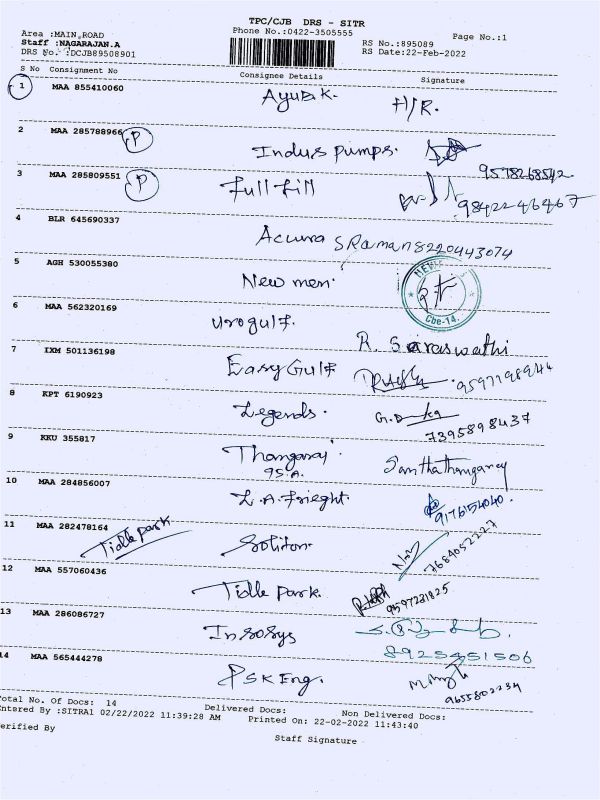 TPC/CJB DRS - SITR
Area :MAIN ROAD Phone No.:0422-3505555 Page No.:1
Staff :NAGARAJAN.A RS No.:895089
DRS No. :DCJB89508901 RS Date:22-Feb-2022
S No Consignment No Consignee Details Signature
1 MAA 855410060 Ayub K. H/R.
2 MAA 285788966 P Indus pumps. 9578268542
3 MAA 285809551 P Full Fill 9842246467
4 BLR 645690337 Acuura S Raman 8220443074
5 AGH 530055380 New men. NEW
Cbe-14.
6 MAA 562320169 Uro gulf. R. Saraswathi
7 IXM 501136198 Easy Gulf 9597198944
8 KPT 6190923 Legends. G.D
7395898437
9 KKU 355817 Thangaraj Santhathangaraj
95.A.
10 MAA 284856007 L.A. Frieght 9176154040.
11 MAA 282478164 Tidle park Soliton 7684052227
12 MAA 557060436 Tidle Park. 9597231825
13 MAA 286086727 Insosys
8925451506
14 MAA 565444278 PSK Eng.
9655802234
Total No. Of Docs: 14 Delivered Docs: Non Delivered Docs:
Entered By :SITRA1 02/22/2022 11:39:28 AM Printed On: 22-02-2022 11:43:40
Verified By Staff Signature